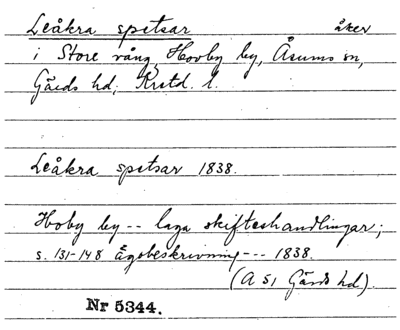 Leåkra spetsar åker
i Store vång, Hovby by, Åsums sn,
Gärds hd, Krstd. l.
Leåkra spetsar 1838.
Hoby by -- laga skifteshandlingar;
s. 131-148 Ägobeskrivning --- 1838.
(A 51 Gärds hd).
Nr 5344.